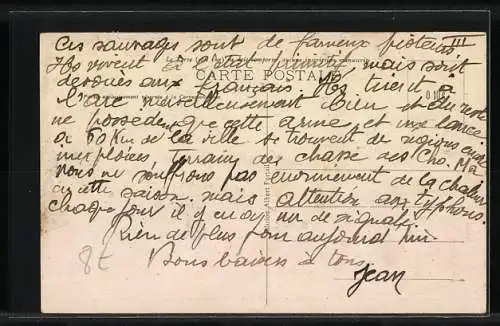 III
Ces sauvages sont de fameux pisteurs.
Ils vivent à l'état primitif mais sont
CARTE POSTALE
dévoués aux français. Ils tirent à
l'arc merveilleusement bien et du reste
ne possèdent que cette arme et une lance.
à 60 Km de la ville se trouvent de régions
inexplorées,
nous ne souffrons pas énormément de la chaleur
en cette saison. mais attention aux typhons.
chaque jour il y en a un de signalé
Rien de plus pour aujourd'hui.
Bons baisers à tous.
Jean
8E